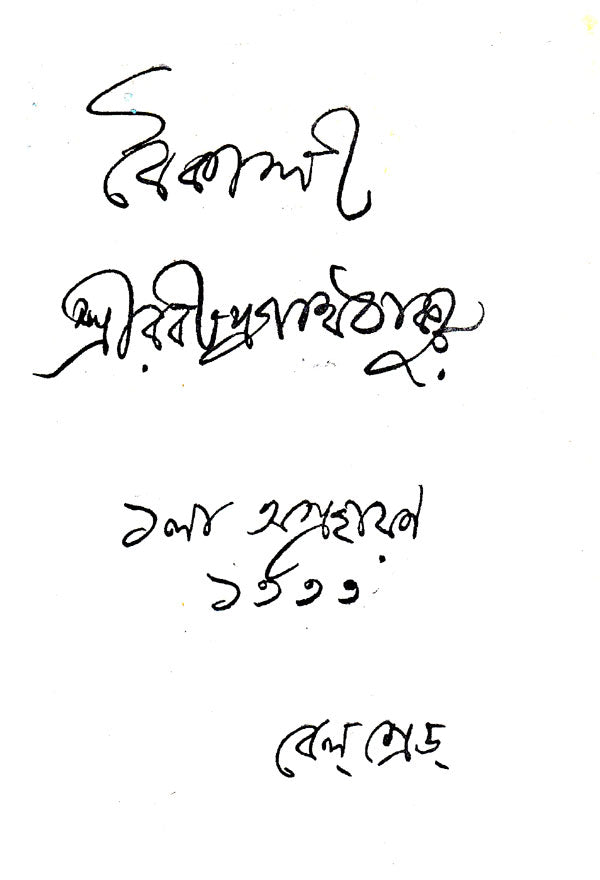 বৈকালী
শ্রীরবীন্দ্রনাথ ঠাকুর
১লা অগ্রহায়ণ
১৩৩৩
বেল্ গ্রেড্